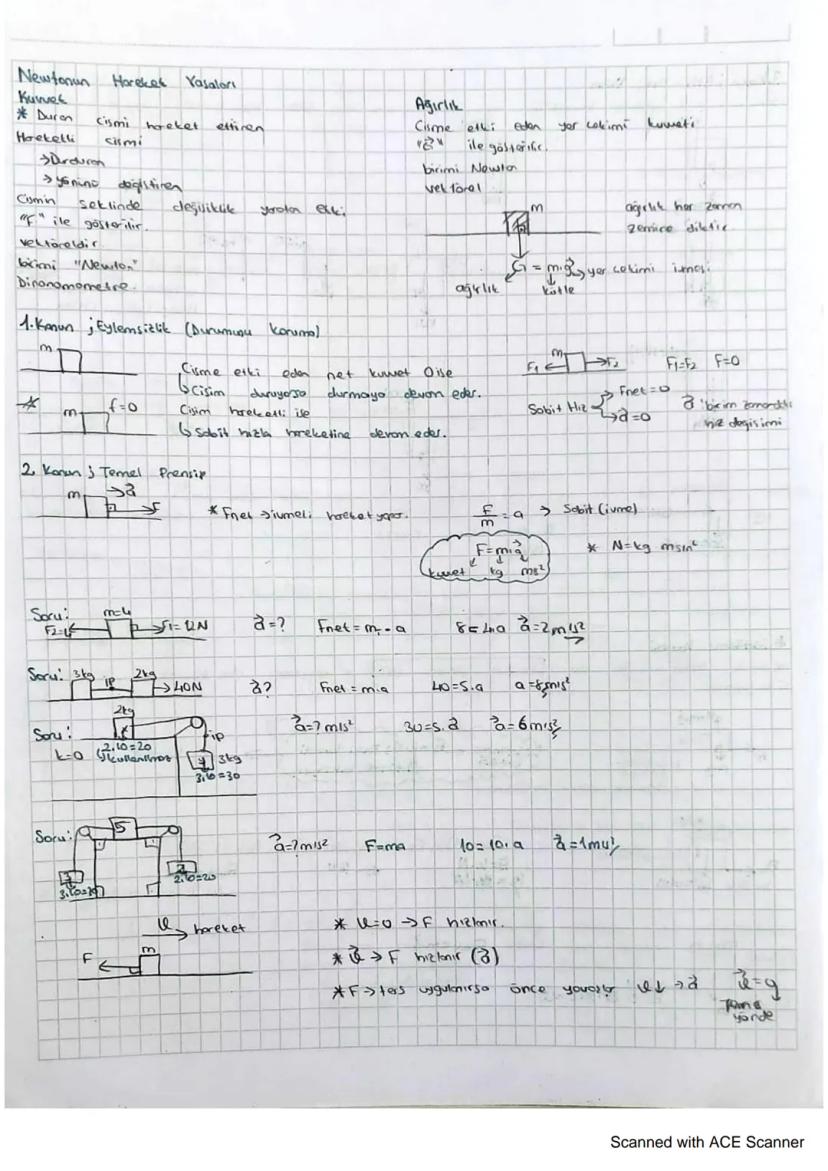 Newtonun Hareket Yasaları
Kuvvet
* Duran cismi hareket ettiren
Hareketli cismi
→Durduran
→yönünü değiştiren
Cismin şeklinde değişiklik yaratan etki.
"F" ile gösterilir.
vektöreldir.
birimi "Newton"
Dinanomometre.
Ağırlık
Cisme etki eden yer çekimi kuvveti
"G" ile gösterilir.
birimi Newton
vektörel
m
ağırlık her zaman
zemine diktir
G = m.g → yer çekimi ivmesi
ağırlık kütle
1. Kanun ; Eylemsizlik (Durumunu koruma)
m
Cisme etki eden net kuvvet 0 ise
↳ Cisim duruyorsa durmaya devam eder.
m f=0
Cisim hareketli ise
↳ Sabit hızla hareketine devam eder.
F1 ← m → F2 F1=F2 F=0
Sabit Hız → Fnet=0
→ a=0
a birim zamandaki
hız değişimi
2. Kanun ; Temel Prensip
m → a
F
* Fnet → ivmeli hareket yapar.
F/m = a → Sabit (ivme)
F=m.a
kuvvet kg
* N=kg
Soru: m=4
F1=12N a=? Fnet = m . a 8=4.a a=2m/s²
Soru: 3kg ip 2kg → 40N a? Fnet = m.a 40=5.a a=8m/s²
Soru: 2kg ip
k=0 2.10=20 3kg
3.10=30
a=? m/s² 30=5.a a=6m/s²
Soru: 5
2.10=20
a=? m/s² F=ma 10=10.a
→ hareket
F ← m
* V=0 → F hızlanır.
* V → F hızlanır (a)
* F → ters uygulanırsa önce yavaşlar
yönde
Scanned with ACE Scanner